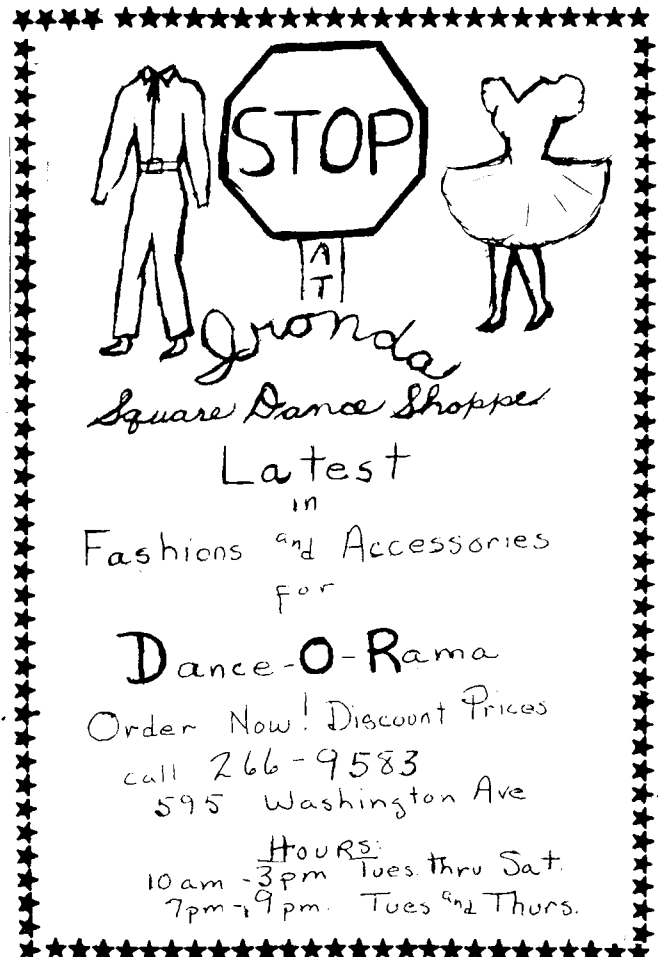 STOP
AT
Ironda
Square Dance Shoppe
Latest
in
Fashions and Accessories
for
Dance-O-Rama
Order Now! Discount Prices
call 266-9583
595 Washington Ave
HOURS:
10am - 3pm Tues. thru Sat.
7pm - 9pm. Tues and Thurs.